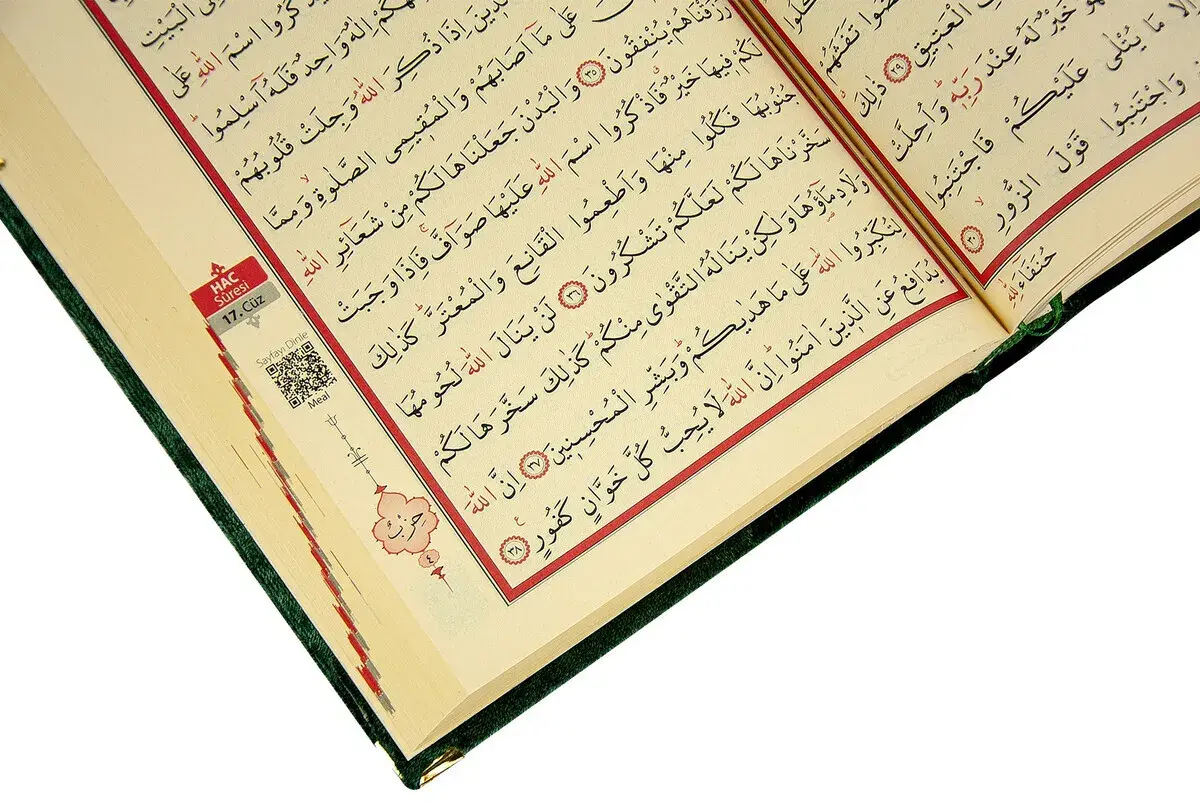 تَفَثَهُمْ
الْعَتِيقِ ﴿٢٩﴾ ذٰلِكَ
خَيْرٌ لَهُ عِنْدَ رَبِّهٖ وَاُحِلَّتْ
اِلَّا مَا يُتْلٰى عَلَيْكُمْ فَاجْتَنِبُوا
وَاجْتَنِبُوا قَوْلَ الزُّورِ ﴿٣٠﴾
حُنَفَاءَ لِلّٰهِ
الْبَيْتِ
اسْمَ اللّٰهِ عَلٰى
اِلٰهٌ وَاحِدٌ فَلَهُٓ اَسْلِمُوا
اِذَا ذُكِرَ اللّٰهُ وَجِلَتْ قُلُوبُهُمْ
عَلٰى مَٓا اَصَابَهُمْ وَالْمُقٖيمِى الصَّلٰوةِ وَمِمَّا
رَزَقْنَاهُمْ يُنْفِقُونَ ﴿٣٥﴾ وَالْبُدْنَ جَعَلْنَاهَا لَكُمْ مِنْ شَعَٓائِرِ اللّٰهِ
لَكُمْ فٖيهَا خَيْرٌ فَاذْكُرُوا اسْمَ اللّٰهِ عَلَيْهَا صَوَٓافَّ فَاِذَا وَجَبَتْ
جُنُوبُهَا فَكُلُوا مِنْهَا وَاَطْعِمُوا الْقَانِعَ وَالْمُعْتَرَّ كَذٰلِكَ
سَخَّرْنَاهَا لَكُمْ لَعَلَّكُمْ تَشْكُرُونَ ﴿٣٦﴾ لَنْ يَنَالَ اللّٰهَ لُحُومُهَا
وَلَا دِمَٓاؤُهَا وَلٰكِنْ يَنَالُهُ التَّقْوٰى مِنْكُمْ كَذٰلِكَ سَخَّرَهَا لَكُمْ
لِتُكَبِّرُوا اللّٰهَ عَلٰى مَا هَدٰيكُمْ وَبَشِّرِ الْمُحْسِنٖينَ ﴿٣٧﴾ اِنَّ اللّٰهَ
يُدَافِعُ عَنِ الَّذٖينَ اٰمَنُوا اِنَّ اللّٰهَ لَا يُحِبُّ كُلَّ خَوَّانٍ كَفُورٍ ﴿٣٨﴾
HAC
Sûresi
17. Cüz
Sayfayı Dinle
Meal
حزب
٤